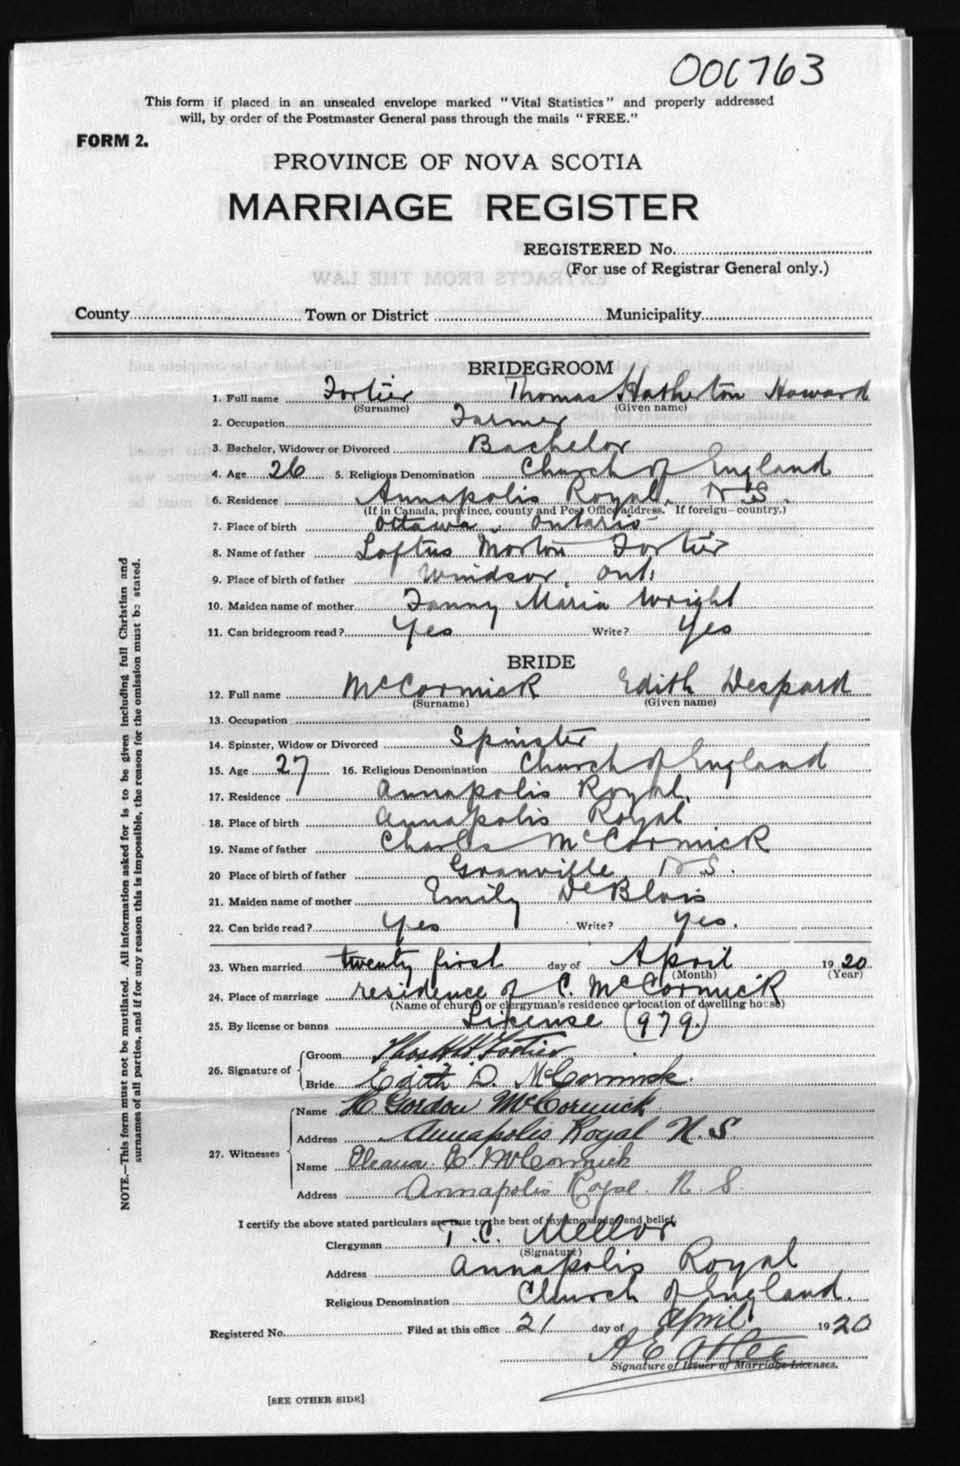 006763
This form if placed in an unsealed envelope marked "Vital Statistics" and properly addressed
will, by order of the Postmaster General pass through the mails "FREE."
FORM 2.
PROVINCE OF NOVA SCOTIA
MARRIAGE REGISTER
REGISTERED No.
(For use of Registrar General only.)
EXTRACTS FROM THE LAW
County Town or District Municipality
BRIDEGROOM
1. Full name Fortier Thomas Hatherton Howard
(Surname) (Given name)
2. Occupation Farmer
3. Bachelor, Widower or Divorced Bachelor
4. Age 26 5. Religious Denomination Church of England
6. Residence Annapolis Royal, N.S.
(If in Canada, province, county and Post Office address. If foreign—country.)
7. Place of birth Ottawa, Ontario
8. Name of father Loftus Morton Fortier
9. Place of birth of father Windsor, Ont.
10. Maiden name of mother Fanny Maria Wright
11. Can bridegroom read? Yes Write? Yes
BRIDE
12. Full name McCormick Edith Despard
(Surname) (Given name)
13. Occupation
14. Spinster, Widow or Divorced Spinster
15. Age 27 16. Religious Denomination Church of England
17. Residence Annapolis Royal,
18. Place of birth Annapolis Royal
19. Name of father Charles McCormick
20 Place of birth of father Granville N.S.
21. Maiden name of mother Emily DeBlois
22. Can bride read? Yes Write? Yes.
23. When married twenty first day of April 1920
(Month) (Year)
24. Place of marriage residence of C. McCormick
(Name of church or clergyman's residence or location of dwelling house)
25. By license or banns License (979.)
26. Signature of Groom Thos H H Fortier
Bride Edith D. McCormick.
27. Witnesses Name H Gordon McCormick
Address Annapolis Royal N.S.
Name E. McCormick
Address Annapolis Royal. N.S.
I certify the above stated particulars are true to the best of my knowledge and belief.
Clergyman T. C. Mellor
(Signature)
Address Annapolis Royal
Religious Denomination Church of England.
Registered No. Filed at this office 21 day of April 1920
A E
Signature of Issuer of Marriage Licenses.
[SEE OTHER SIDE]
NOTE.—This form must not be mutilated. All information asked for is to be given including full Christian and
surnames of all parties, and if for any reason this is impossible, the reason for the omission must be stated.